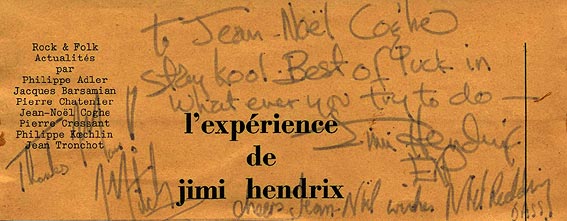 Rock & Folk
Actualités
par
Philippe Adler
Jacques Barsamian
Pierre Chatenier
Jean-Noël Coghe
Pierre Cressant
Philippe Kœchlin
Jean Tronchot
to Jean-Noël Coghe
stay kool. Best of luck in
what ever you try to do
Jimi Hendrix
l'expérience
de
jimi hendrix
Thanks
Mitch
cheers Jean-Noel wishes Noel Redding